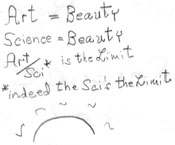 Art = Beauty
Science = Beauty
Art/Sci* is the Limit
*indeed the Sci's the Limit